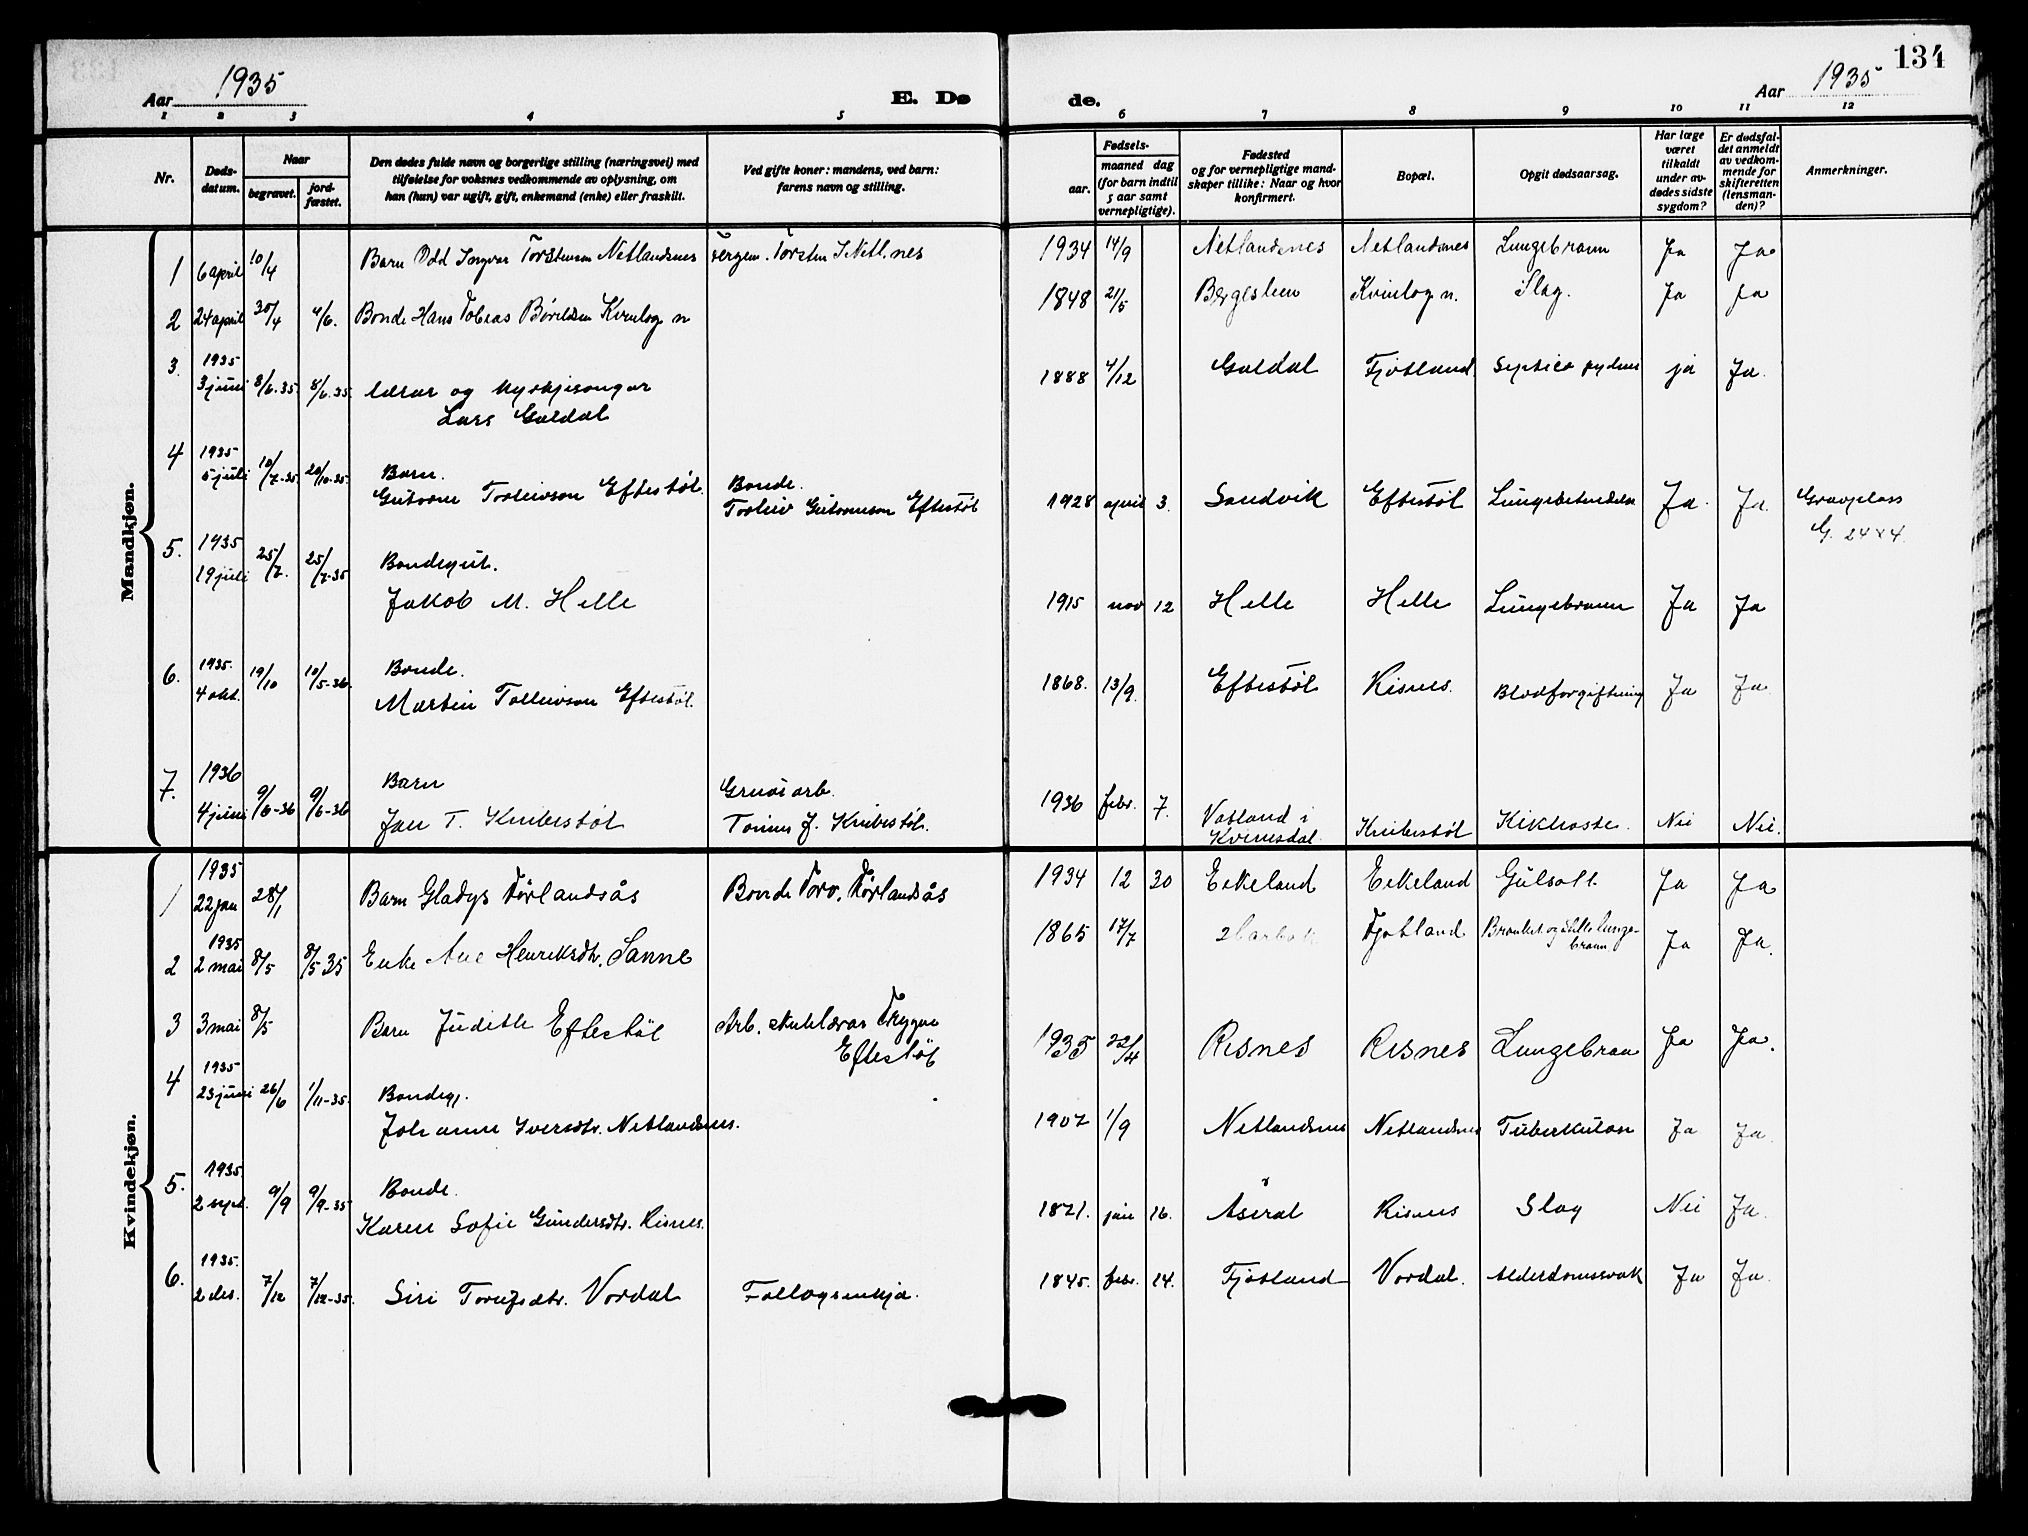 134
Aar 1935
E. Dø
de.
Aar 1935
1 2 3 4 5 6 7 8 9 10 11 12
Nr.
Døds-
datum.
Naar
begravet.
jord-
fæstet.
Den dødes fulde navn og borgerlige stilling (næringsvei) med
tilføielse for voksnes vedkommende av oplysning, om
han (hun) var ugift, gift, enkemand (enke) eller fraskilt.
Ved gifte koner: mandens, ved barn:
farens navn og stilling.
Fødsels-
aar.
maaned dag
(for barn indtil
5 aar samt
vernepligtige).
Fødested
og for vernepligtige mand-
skaper tillike: Naar og hvor
konfirmert.
Bopæl.
Opgit dødsaarsag.
Har læge
været
tilkaldt
under av-
dødes sidste
sygdom?
Er dødsfal-
det anmeldt
av vedkom-
mende for
skifteretten
(lensman-
den)?
Anmerkninger.
Mandkjøn.
1 6 april 10/4 Barn Odd Ingvar Torstensen Netlandsnes Torsten I. Netl.nes 1934 14/9 Netlandsnes Netlandsnes Lungebrann Ja Ja
2 24 april 30/4 4/6. Bonde Hans Tobias Kvinlog n 1848 21/5 Kvinlog n. Slag. Ja Ja
3. 1935
3 juni 8/6.35. 8/6.35. lærar og kyrkjesongar
Lars Guldal 1888 4/12 Guldal Fjotland Septico ja Ja.
4 1935
5 juli 10/7-35 20/10-35 Barn.
Guttorm Torleivson Eftestøl. Bonde.
Torleiv Guttormson Eftestøl 1928 april 3. Sandvik Eftestøl Lungebetændelse Ja. Ja. Gravplass
G. 24 x 4.
5. 1935
19 juli 25/7. 25/7-35 Bondegut.
Jakob M. Helle 1915 nov 12 Helle Helle Lungebrann Ja Ja
6. 1935.
4 okt. 19/10 10/5-36. Bonde.
Martin Tolleivson Eftestøl. 1868. 13/9. Eftestøl Risnes. Blodforgiftning Ja Ja.
7. 1936
4 juni 9/6-36 9/6-36 Barn
Jan T. Knibestøl Gruvearb.
Tønnes J. Knibestøl. 1936 febr. 7. Vatland i
Kvinesdal. Knibestøl Kikhoste. Nei Nei.
Kvindekjøn.
1 1935
22 jan 28/1 Barn Gladys Førlandsås Bonde Førlandsås 1934 12 30 Eikeland Eikeland Gulsott Ja Ja
2 1935
2 mai 8/5 8/5 35 Enke Ane Henriksdtr. Sanne 1865 17/7 Fjotland Bronkit. og lunge-
brann Ja Ja.
3 3 mai 8/5 Barn Judith Eftestøl Arb. skulelærar Trygve
Eftestøl 1935 22/4 Risnes Risnes Lungebran Ja Ja.
4 1935
23 juni 26/6 1/11-35. Bondegj.
Johanne Iversdtr. Netlandsnes. 1907 1/9 Netlandsnes Netlandsnes Tuberkulose Ja Ja.
5. 1935.
2 sept. 9/9 9/9-35 Bonde.
Karen Sofie Gundersdtr. Risnes. jan 16. Åseral Risnes Slag Nei Ja.
6. 1935.
2 des. 7/12 7/12-35. Siri Vordal Follagsenkja. 1845. febr. 14. Fjotland Vordal. Alderdomssvak Ja Ja.